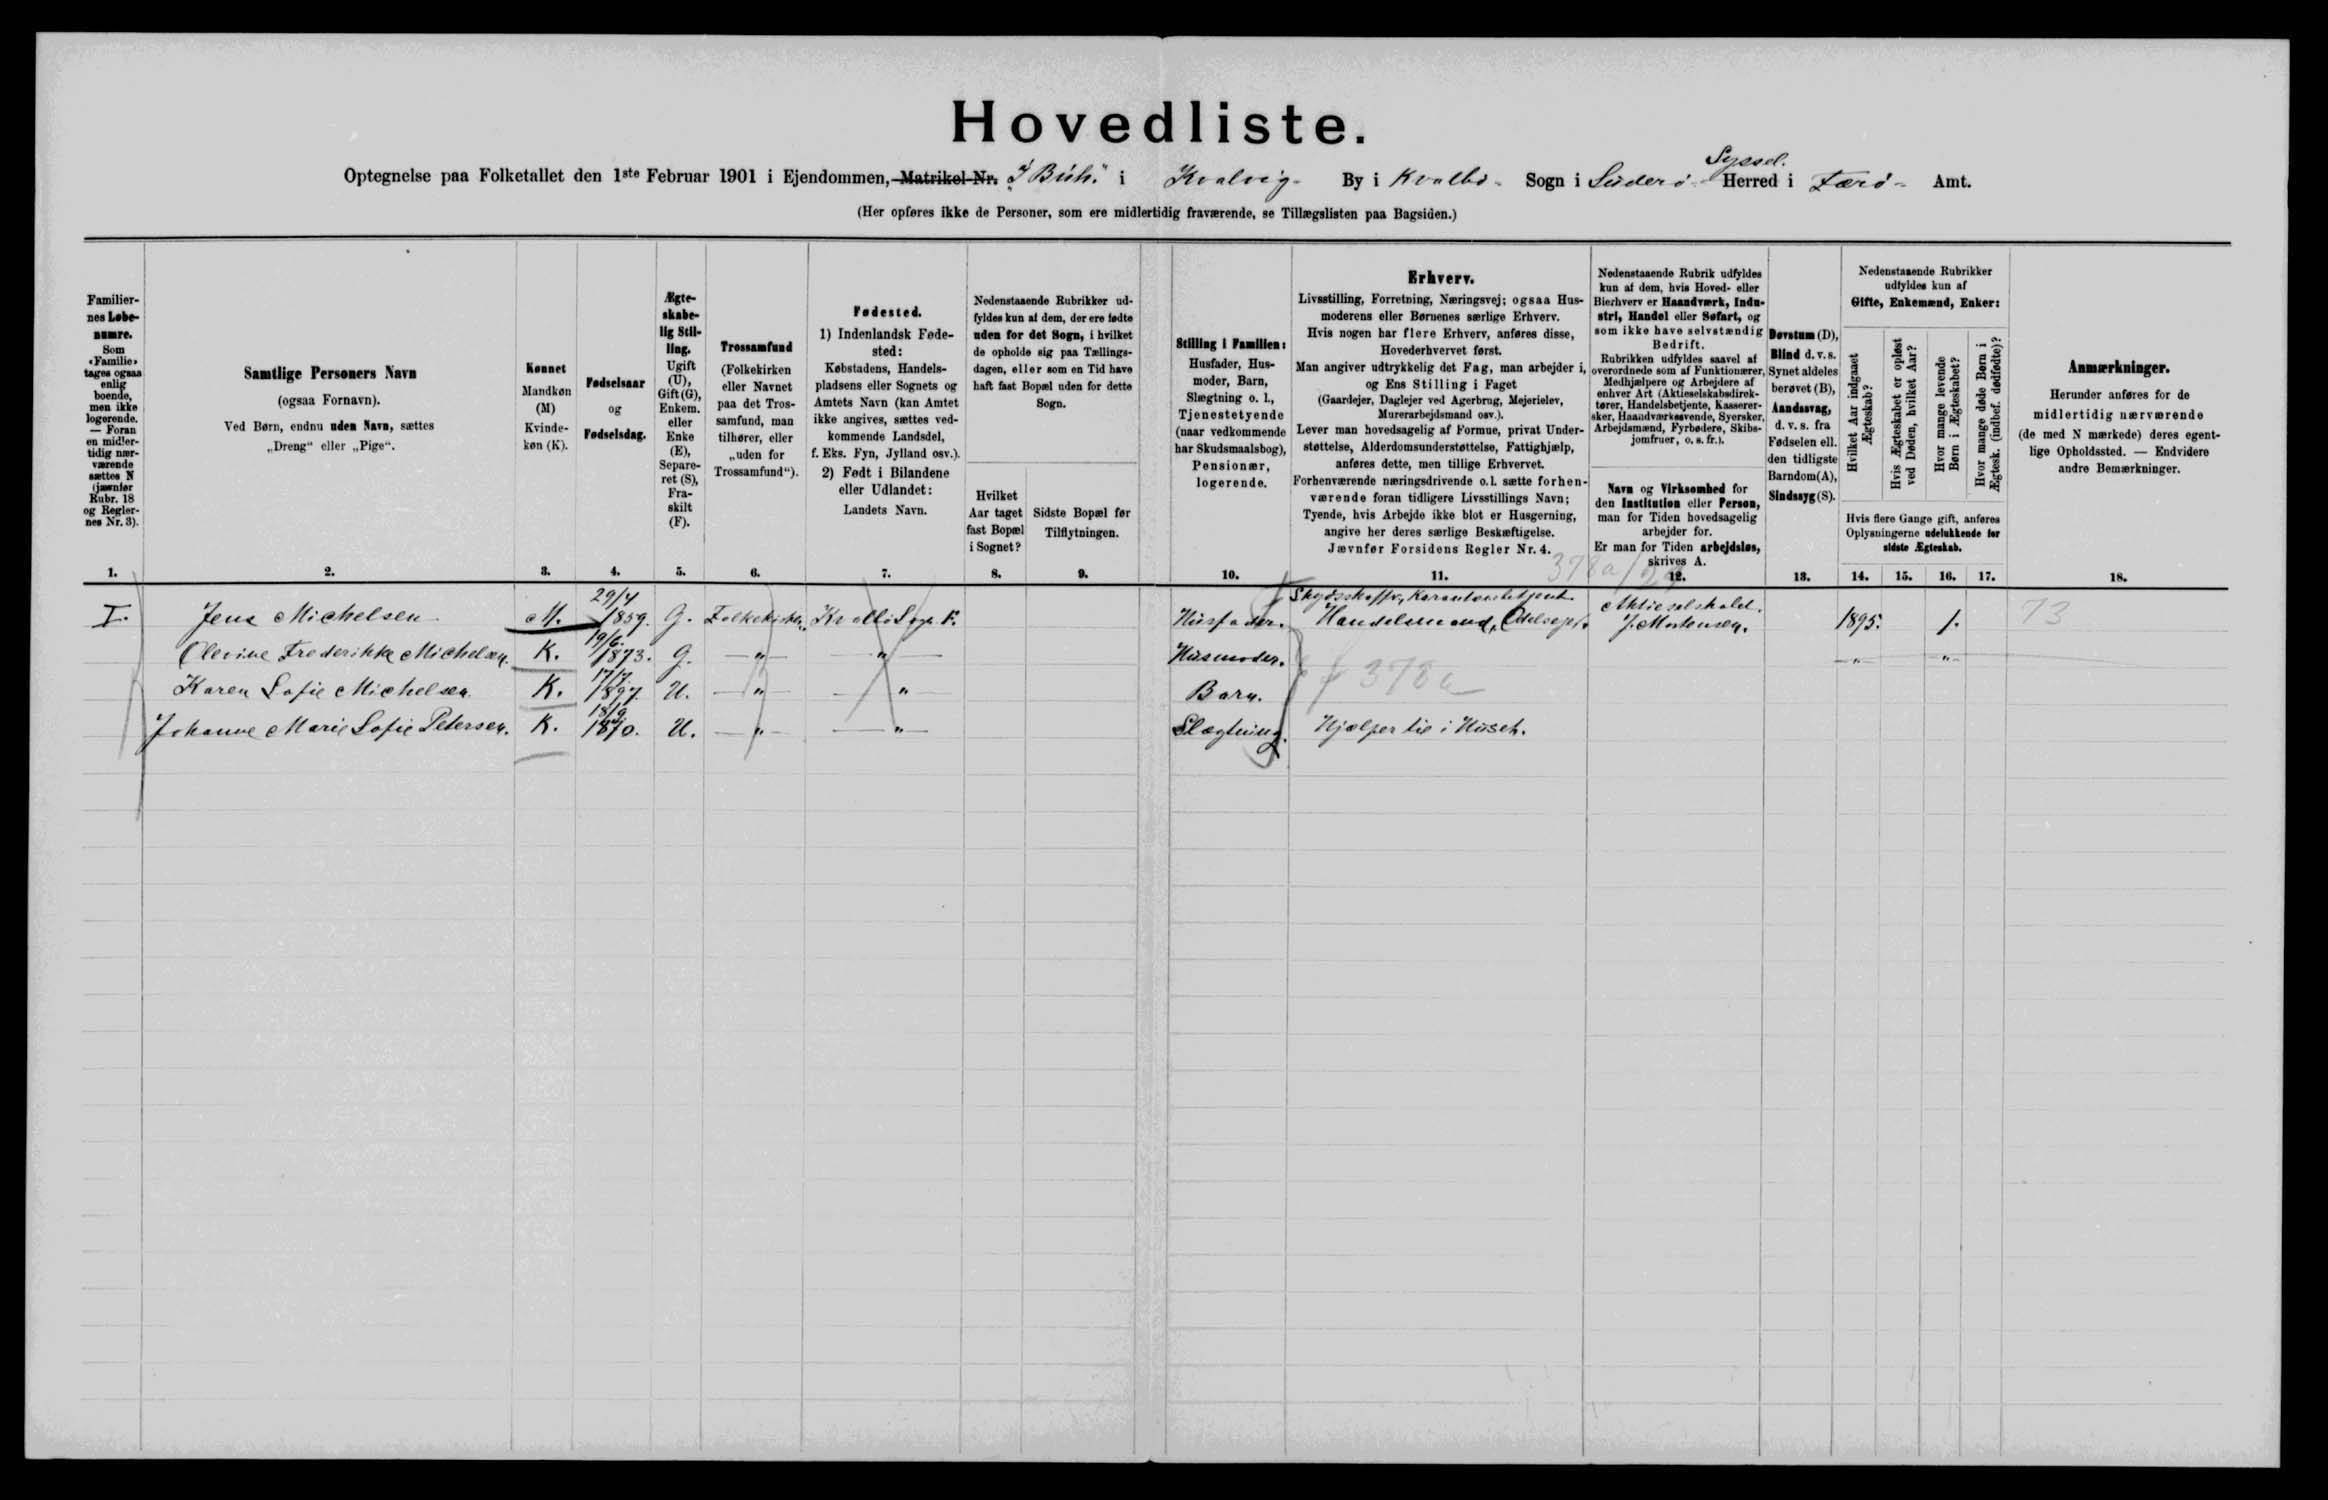 Hovedliste.
Optegnelse paa Folketallet den 1ste Februar 1901 i Ejendommen, Matrikel-Nr. "Í Búh." i Kvalvig By i Kvalbø Sogn i Suderø Syssel. Herred i Færø Amt.
(Her opføres ikke de Personer, som ere midlertidig fraværende, se Tillægslisten paa Bagsiden.)
Familier-
nes Løbe-
numre.
Som
«Familie»
tages ogsaa
enlig
boende,
men ikke
logerende.
— Foran
en midler-
tidig nær-
værende
sættes N
(jævnfør
Rubr. 18
og Regler-
nes Nr. 3).
1.
Samtlige Personers Navn
(ogsaa Fornavn).
Ved Børn, endnu uden Navn, sættes
„Dreng“ eller „Pige“.
2.
Kønnet
Mandkøn
(M)
Kvinde-
køn (K).
3.
Fødselsaar
og
Fødselsdag.
4.
Ægte-
skabe-
lig Stil-
ling.
Ugift
(U),
Gift (G),
Enkem.
eller
Enke
(E),
Separe-
ret (S),
Fra-
skilt
(F).
5.
Trossamfund
(Folkekirken
eller Navnet
paa det Tros-
samfund, man
tilhører, eller
„uden for
Trossamfund“).
6.
Fødested.
1) Indenlandsk Føde-
sted:
Købstadens, Handels-
pladsens eller Sognets og
Amtets Navn (kan Amtet
ikke angives, sættes ved-
kommende Landsdel,
f. Eks. Fyn, Jylland osv.).
2) Født i Bilandene
eller Udlandet:
Landets Navn.
7.
Nedenstaaende Rubrikker ud-
fyldes kun af dem, der ere fødte
uden for det Sogn, i hvilket
de opholde sig paa Tællings-
dagen, eller som en Tid have
haft fast Bopæl uden for dette
Sogn.
Hvilket
Aar taget
fast Bopæl
i Sognet?
8.
Sidste Bopæl før
Tilflytningen.
9.
Stilling i Familien:
Husfader, Hus-
moder, Barn,
Slægtning o. l.,
Tjenestetyende
(naar vedkommende
har Skudsmaalsbog),
Pensionær,
logerende.
10.
Erhverv.
Livsstilling, Forretning, Næringsvej; ogsaa Hus-
moderens eller Børnenes særlige Erhverv.
Hvis nogen har flere Erhverv, anføres disse,
Hovederhvervet først.
Man angiver udtrykkelig det Fag, man arbejder i,
og Ens Stilling i Faget
(Gaardejer, Daglejer ved Agerbrug, Mejerielev,
Murerarbejdsmand osv.).
Lever man hovedsagelig af Formue, privat Under-
støttelse, Alderdomsunderstøttelse, Fattighjælp,
anføres dette, men tillige Erhvervet.
Forhenværende næringsdrivende o. l. sætte forhen-
værende foran tidligere Livsstillings Navn;
Tyende, hvis Arbejde ikke blot er Husgerning,
angive her deres særlige Beskæftigelse.
Jævnfør Forsidens Regler Nr. 4.
11.
Nedenstaaende Rubrik udfyldes
kun af dem, hvis Hoved- eller
Bierhverv er Haandværk, Indu-
stri, Handel eller Søfart, og
som ikke have selvstændig
Bedrift.
Rubrikken udfyldes saavel af
overordnede som af Funktionærer,
Medhjælpere og Arbejdere af
enhver Art (Aktieselskabsdirek-
tører, Handelsbetjente, Kasserer-
sker, Haandværkssvende, Syersker,
Arbejdsmænd, Fyrbødere, Skibs-
jomfruer, o. s. fr.).
Navn og Virksomhed for
den Institution eller Person,
man for Tiden hovedsagelig
arbejder for.
Er man for Tiden arbejdsløs,
skrives A.
12.
Døvstum (D),
Blind d. v. s.
Synet aldeles
berøvet (B),
Aandssvag,
d. v. s. fra
Fødselen ell.
den tidligste
Barndom (A),
Sindssyg (S).
13.
Nedenstaaende Rubrikker
udfyldes kun af
Gifte, Enkemænd, Enker:
Hvilket Aar indgaaet
Ægteskab?
Hvis Ægteskabet er opløst
ved Døden, hvilket Aar?
Hvor mange levende
Børn i Ægteskabet?
Hvor mange døde Børn i
Ægtesk. (indbef. dødfødte)?
Hvis flere Gange gift, anføres
Oplysningerne udelukkende for
sidste Ægteskab.
14. 15. 16. 17.
Anmærkninger.
Herunder anføres for de
midlertidig nærværende
(de med N mærkede) deres egent-
lige Opholdssted. — Endvidere
andre Bemærkninger.
18.
378a
I. Jens Michelsen M. 29/4 1859. G. Folkekirken Kvalbø Sogn F. Husfader. Skydsskaffer, Karantænebetjent Handelsmand, Aktieselskabet J. Mortensen. 1895. 1. 73
Olevine Frederikke Michelsen. K. 19/6. 1873. G. — " — — " — Husmoder. — " — — " —
Karen Sofie Michelsen. K. 17/7. 1897. U. — " — — " — Barn. 378a
Johanne Marie Sofie Petersen. K. 18/9 1870. U. — " — — " — Slægtning. Hjælper til i Huset.